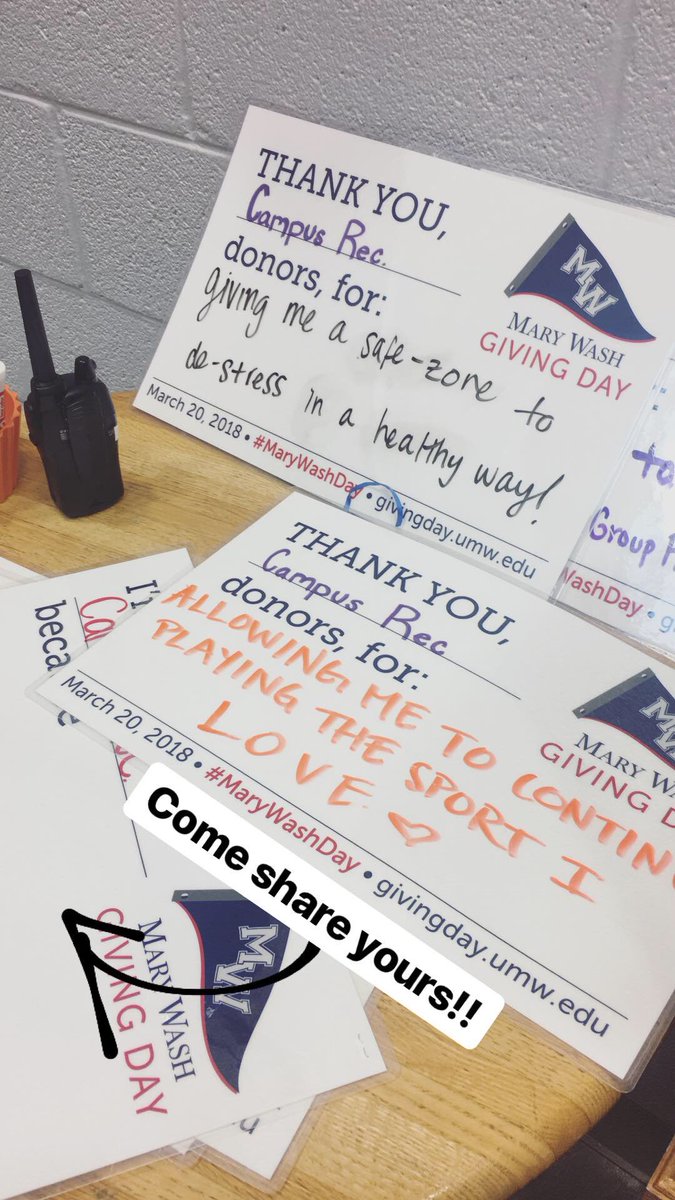 THANK YOU,
Campus Rec.
donors, for:
giving me a safe-zone to
de-stress in a healthy way!
March 20, 2018 • #MaryWashDay • givingday.umw.edu
MW
MARY WASH
GIVING DAY
Group
WashDay • givingday.umw.edu
THANK YOU,
Campus Rec
donors, for:
ALLOWING ME TO CONTINU
PLAYING THE SPORT I
LOVE ♡
March 20, 2018 • #MaryWashDay • givingday.umw.edu
MW
MARY WASH
GIVING DAY
Come share yours!!
MW
MARY WASH
GIVING DAY